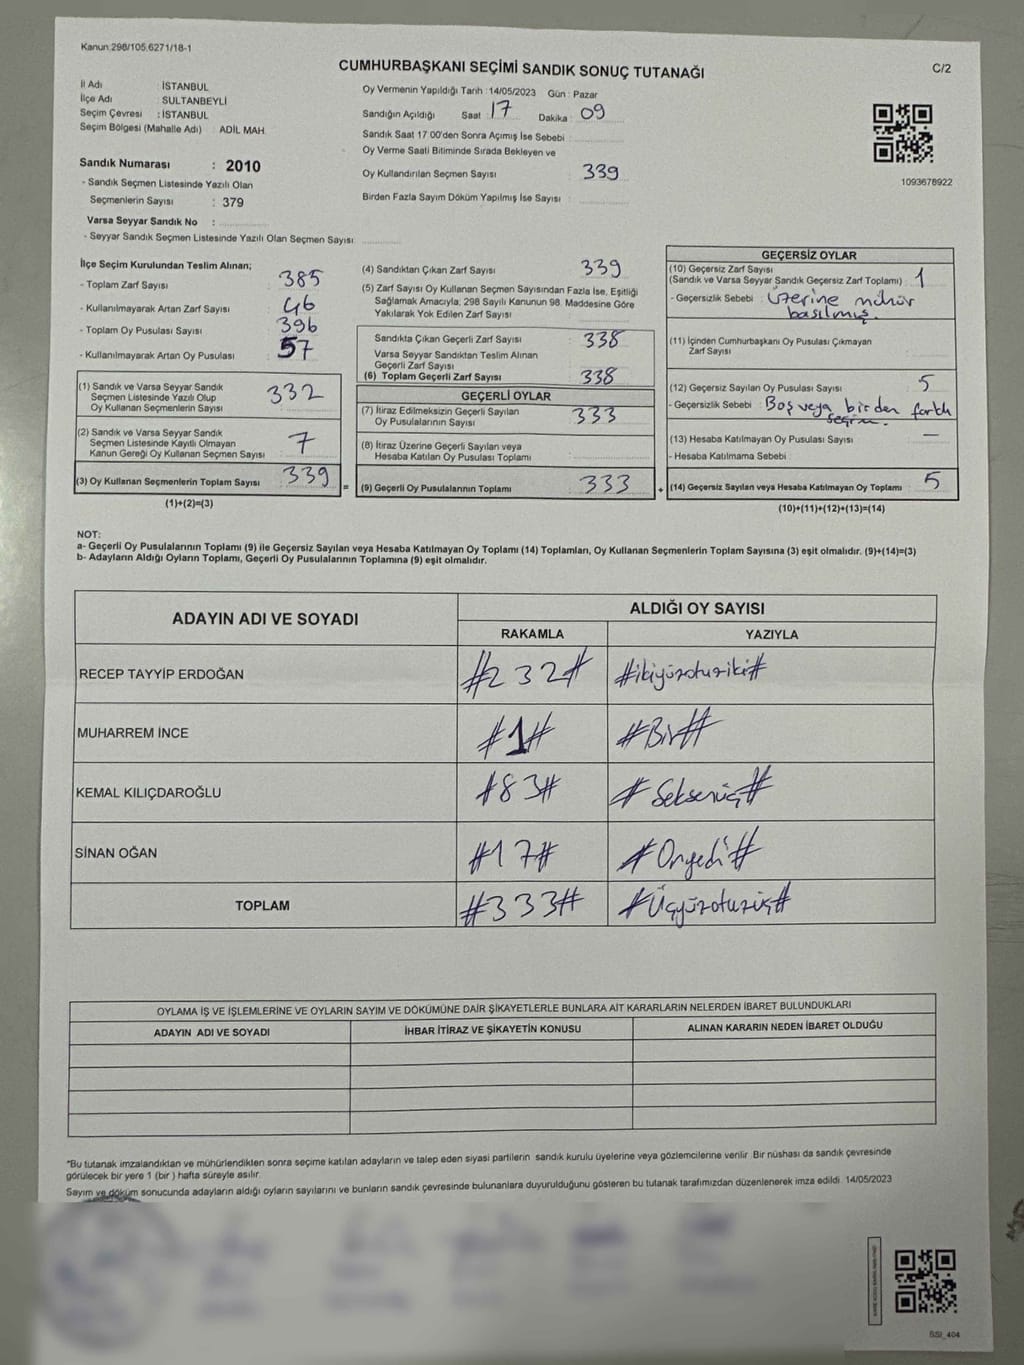 Kanun:298/105,6271/18-1
CUMHURBAŞKANI SEÇİMİ SANDIK SONUÇ TUTANAĞI
C/2
İl Adı : İSTANBUL
İlçe Adı : SULTANBEYLİ
Seçim Çevresi : İSTANBUL
Seçim Bölgesi (Mahalle Adı) : ADİL MAH.
Sandık Numarası : 2010
- Sandık Seçmen Listesinde Yazılı Olan
Seçmenlerin Sayısı : 379
Varsa Seyyar Sandık No :
- Seyyar Sandık Seçmen Listesinde Yazılı Olan Seçmen Sayısı:
Oy Vermenin Yapıldığı Tarih :14/05/2023 Gün : Pazar
Sandığın Açıldığı Saat : 17 Dakika : 09
Sandık Saat 17:00'den Sonra Açımış İse Sebebi :
Oy Verme Saati Bitiminde Sırada Bekleyen ve
Oy Kullandırılan Seçmen Sayısı 339
Birden Fazla Sayım Döküm Yapılmış İse Sayısı :
1093678922
İlçe Seçim Kurulundan Teslim Alınan;
- Toplam Zarf Sayısı : 385
- Kullanılmayarak Artan Zarf Sayısı : 46
- Toplam Oy Pusulası Sayısı : 396
- Kullanılmayarak Artan Oy Pusulası : 57
(1) Sandık ve Varsa Seyyar Sandık
Seçmen Listesinde Yazılı Olup
Oy Kullanan Seçmenlerin Sayısı : 332
(2) Sandık ve Varsa Seyyar Sandık
Seçmen Listesinde Kayıtlı Olmayan
Kanun Gereği Oy Kullanan Seçmen Sayısı : 7
(3) Oy Kullanan Seçmenlerin Toplam Sayısı : 339
(1)+(2)=(3)
=
(4) Sandıktan Çıkan Zarf Sayısı : 339
(5) Zarf Sayısı Oy Kullanan Seçmen Sayısından Fazla İse, Eşitliği
Sağlamak Amacıyla; 298 Sayılı Kanunun 98. Maddesine Göre
Yakılarak Yok Edilen Zarf Sayısı :
Sandıkta Çıkan Geçerli Zarf Sayısı : 338
Varsa Seyyar Sandıktan Teslim Alınan
Geçerli Zarf Sayısı :
(6) Toplam Geçerli Zarf Sayısı : 338
GEÇERLİ OYLAR
(7) İtiraz Edilmeksizin Geçerli Sayılan
Oy Pusulalarının Sayısı : 333
(8) İtiraz Üzerine Geçerli Sayılan veya
Hesaba Katılan Oy Pusulası Toplamı :
(9) Geçerli Oy Pusulalarının Toplamı : 333
+
GEÇERSİZ OYLAR
(10) Geçersiz Zarf Sayısı
(Sandık ve Varsa Seyyar Sandık Geçersiz Zarf Toplamı) : 1
- Geçersizlik Sebebi : Üzerine mühür
basılmış.
(11) İçinden Cumhurbaşkanı Oy Pusulası Çıkmayan
Zarf Sayısı :
(12) Geçersiz Sayılan Oy Pusulası Sayısı : 5
- Geçersizlik Sebebi : Boş veya birden fazla
seçim.
(13) Hesaba Katılmayan Oy Pusulası Sayısı : —
- Hesaba Katılmama Sebebi :
(14) Geçersiz Sayılan veya Hesaba Katılmayan Oy Toplamı : 5
(10)+(11)+(12)+(13)=(14)
NOT:
a- Geçerli Oy Pusulalarının Toplamı (9) ile Geçersiz Sayılan veya Hesaba Katılmayan Oy Toplamı (14) Toplamları, Oy Kullanan Seçmenlerin Toplam Sayısına (3) eşit olmalıdır. (9)+(14)=(3)
b- Adayların Aldığı Oyların Toplamı, Geçerli Oy Pusulalarının Toplamına (9) eşit olmalıdır.
ADAYIN ADI VE SOYADI
ALDIĞI OY SAYISI
RAKAMLA YAZIYLA
RECEP TAYYİP ERDOĞAN #232# #ikiyüzotuziki#
MUHARREM İNCE #1# #Bir#
KEMAL KILIÇDAROĞLU #83# #Seksenüç#
SİNAN OĞAN #17# #Onyedi#
TOPLAM #333# #Üçyüzotuzüç#
OYLAMA İŞ VE İŞLEMLERİNE VE OYLARIN SAYIM VE DÖKÜMÜNE DAİR ŞİKAYETLERLE BUNLARA AİT KARARLARIN NELERDEN İBARET BULUNDUKLARI
ADAYIN ADI VE SOYADI İHBAR İTİRAZ VE ŞİKAYETİN KONUSU ALINAN KARARIN NEDEN İBARET OLDUĞU
*Bu tutanak imzalandıktan ve mühürlendikten sonra seçime katılan adayların ve talep eden siyasi partilerin sandık kurulu üyelerine veya gözlemcilerine verilir. Bir nüshası da sandık çevresinde
görülecek bir yere 1 (bir ) hafta süreyle asılır.
Sayım ve döküm sonucunda adayların aldığı oyların sayılarını ve bunların sandık çevresinde bulunanlara duyurulduğunu gösteren bu tutanak tarafımızdan düzenlenerek imza edildi. 14/05/2023
SSI_404